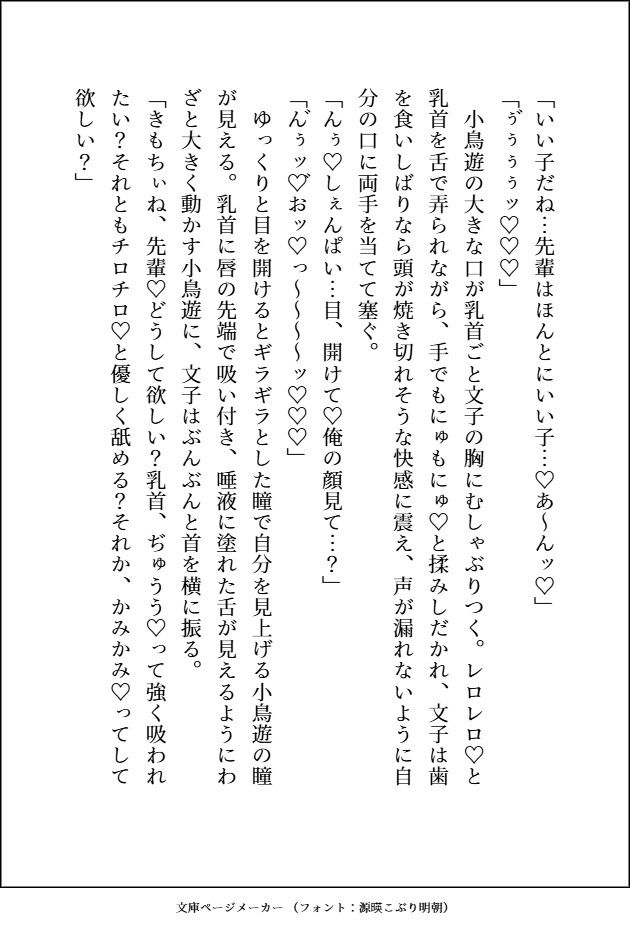 「いい子だね…先輩はほんとにいい子…♡あ〜んッ♡」
「ゔぅぅぅッ♡♡♡」
　小鳥遊の大きな口が乳首ごと文子の胸にむしゃぶりつく。レロレロ♡と
乳首を舌で弄られながら、手でもにゅもにゅ♡と揉みしだかれ、文子は歯
を食いしばりなら頭が焼き切れそうな快感に震え、声が漏れないように自
分の口に両手を当てて塞ぐ。
「んぅ♡しぇんぱい…目、開けて♡俺の顔見て…？」
「ん゙ぅッ♡゙おッ♡っ〜〜〜〜ッ♡♡♡」
　ゆっくりと目を開けるとギラギラとした瞳で自分を見上げる小鳥遊の瞳
が見える。乳首に唇の先端で吸い付き、唾液に塗れた舌が見えるようにわ
ざと大きく動かす小鳥遊に、文子はぶんぶんと首を横に振る。
「きもちぃね、先輩♡どうして欲しい？乳首、ぢゅうう♡って強く吸われ
たい？それともチロチロ♡と優しく舐める？それか、かみかみ♡ってして
欲しい？」
文庫ページメーカー （フォント：源暎こぶり明朝）